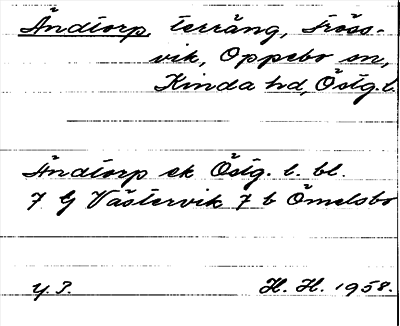 Åndtorp, terräng, Fröss-
vik, Oppebo sn,
Kinda hd, Östg.l.
Åndtorp ek Östg. l. bl.
7 G Västervik 7 b Ömelsbo
Y.P.
H. H. 1958.